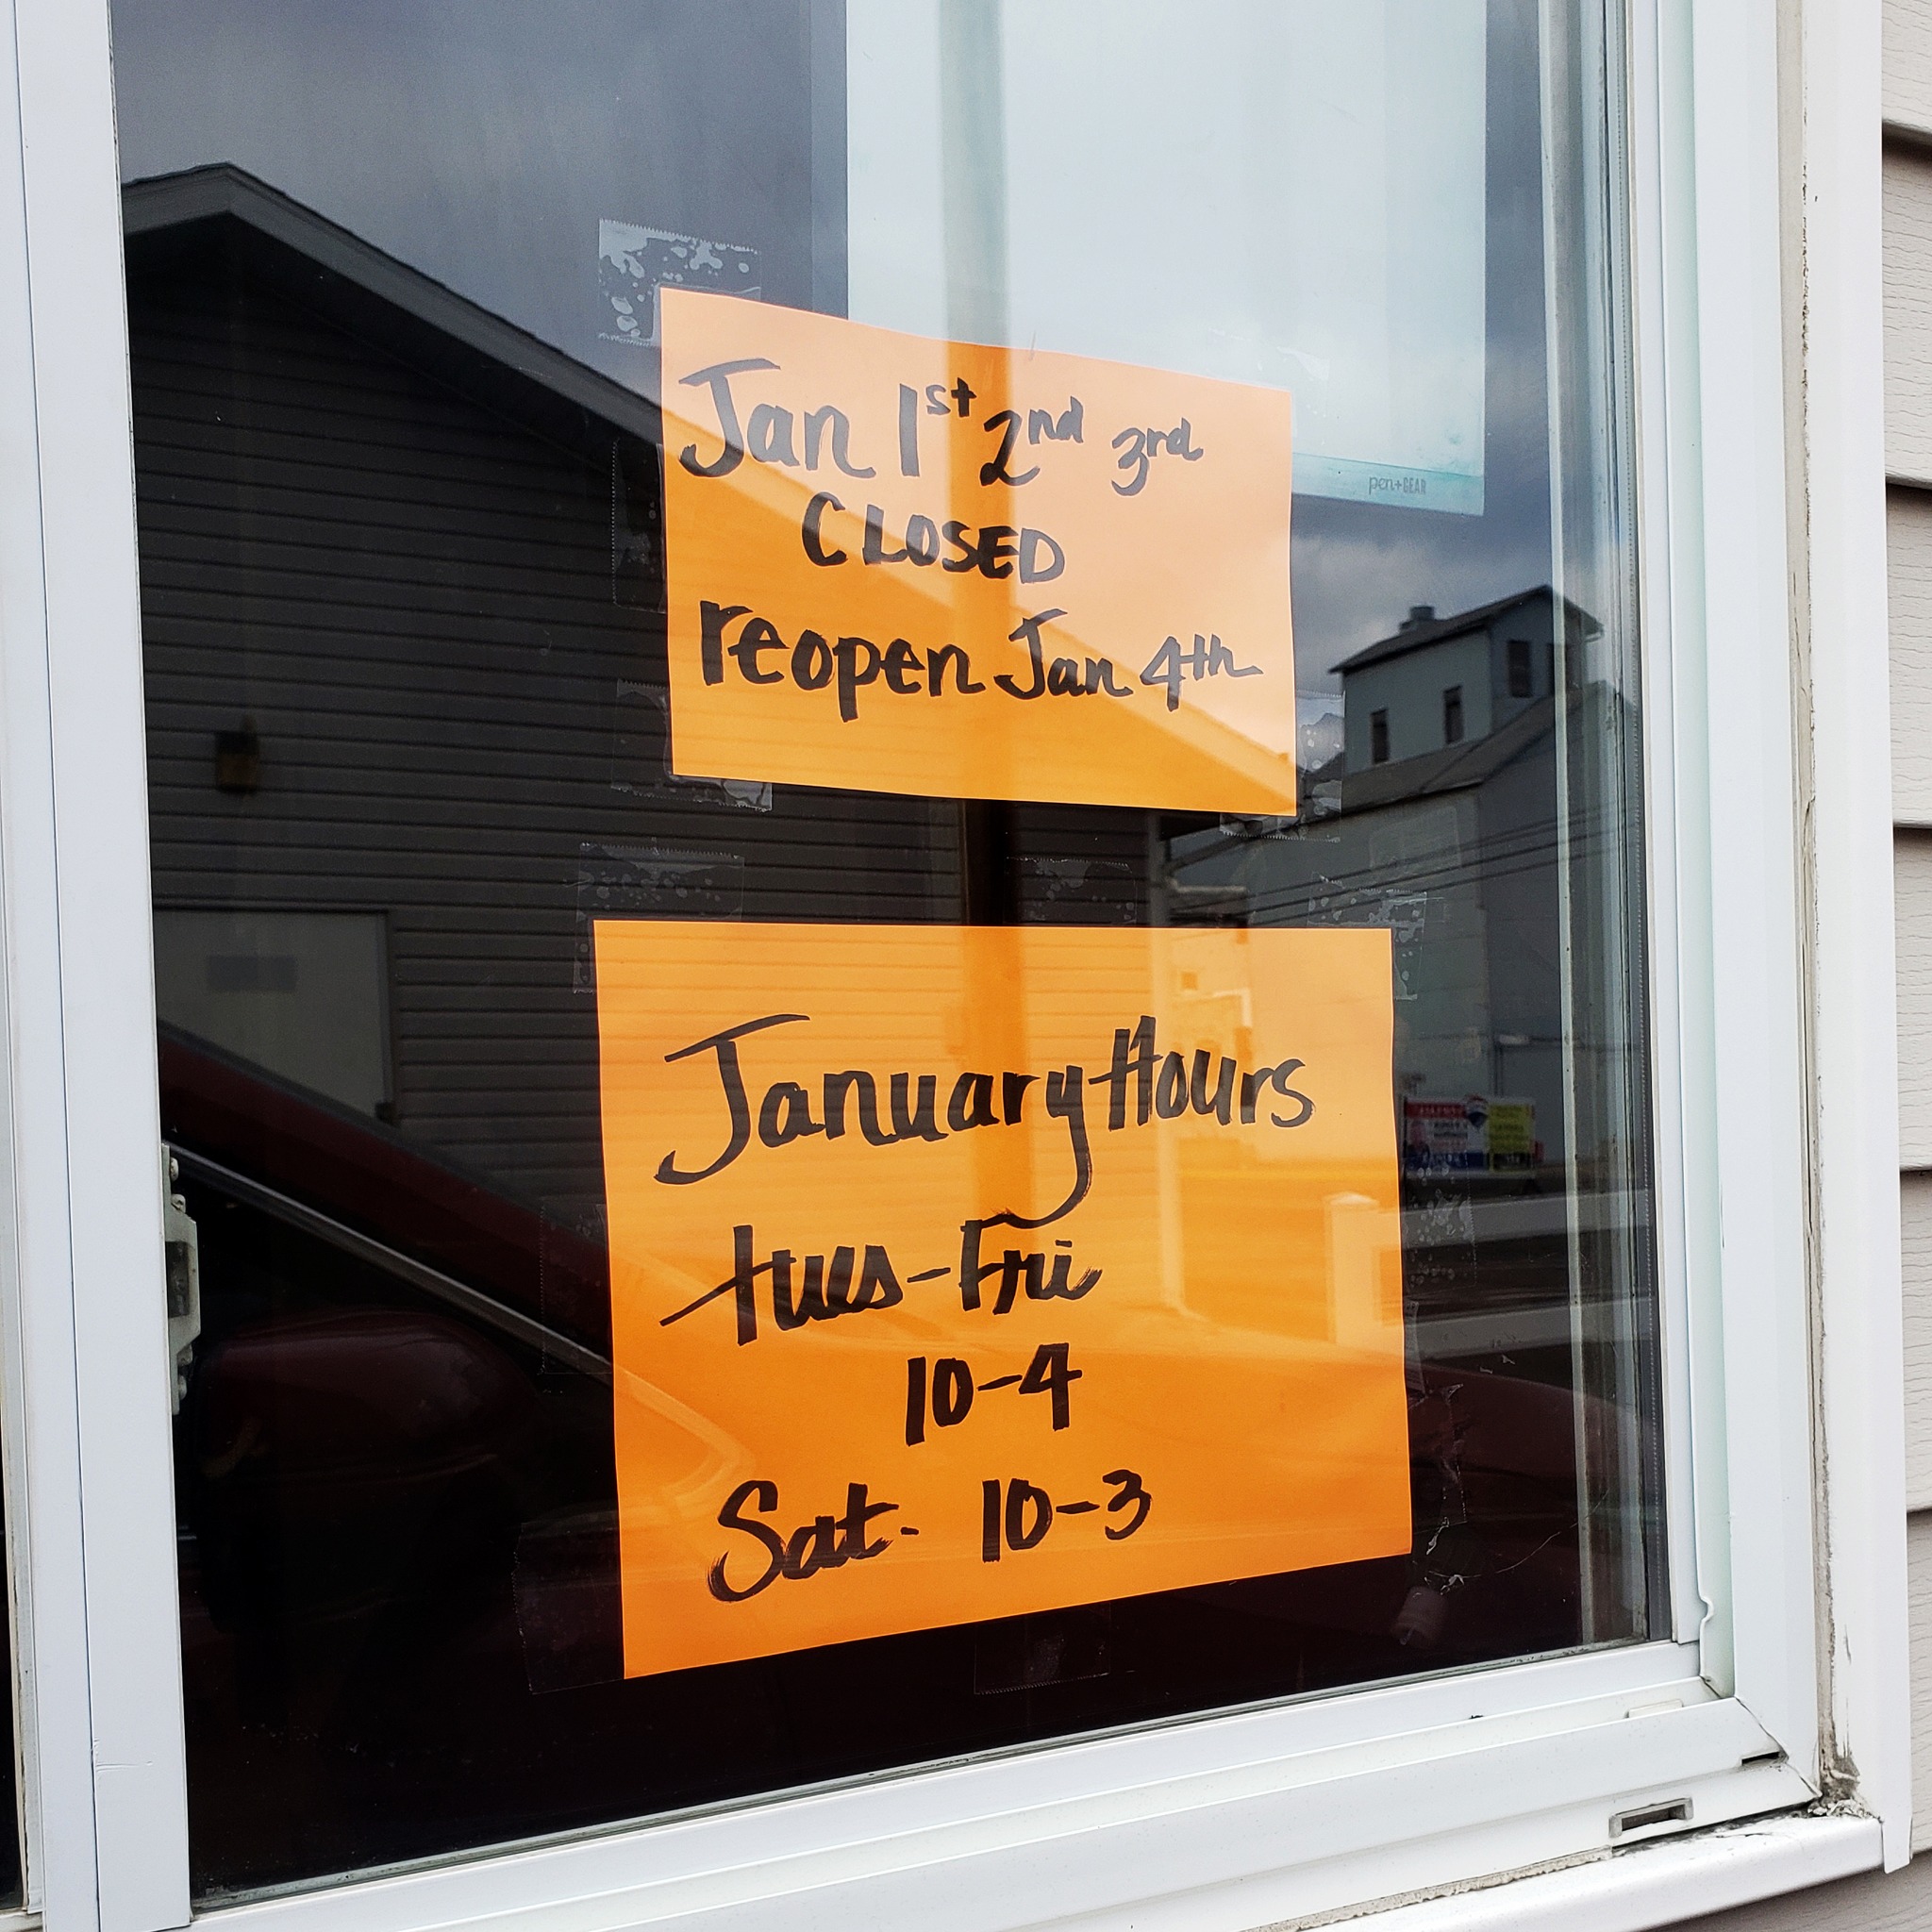 Jan 1st 2nd 3rd
CLOSED
reopen Jan 4th
pen+GEAR
January Hours
tues-Fri
10-4
Sat- 10-3